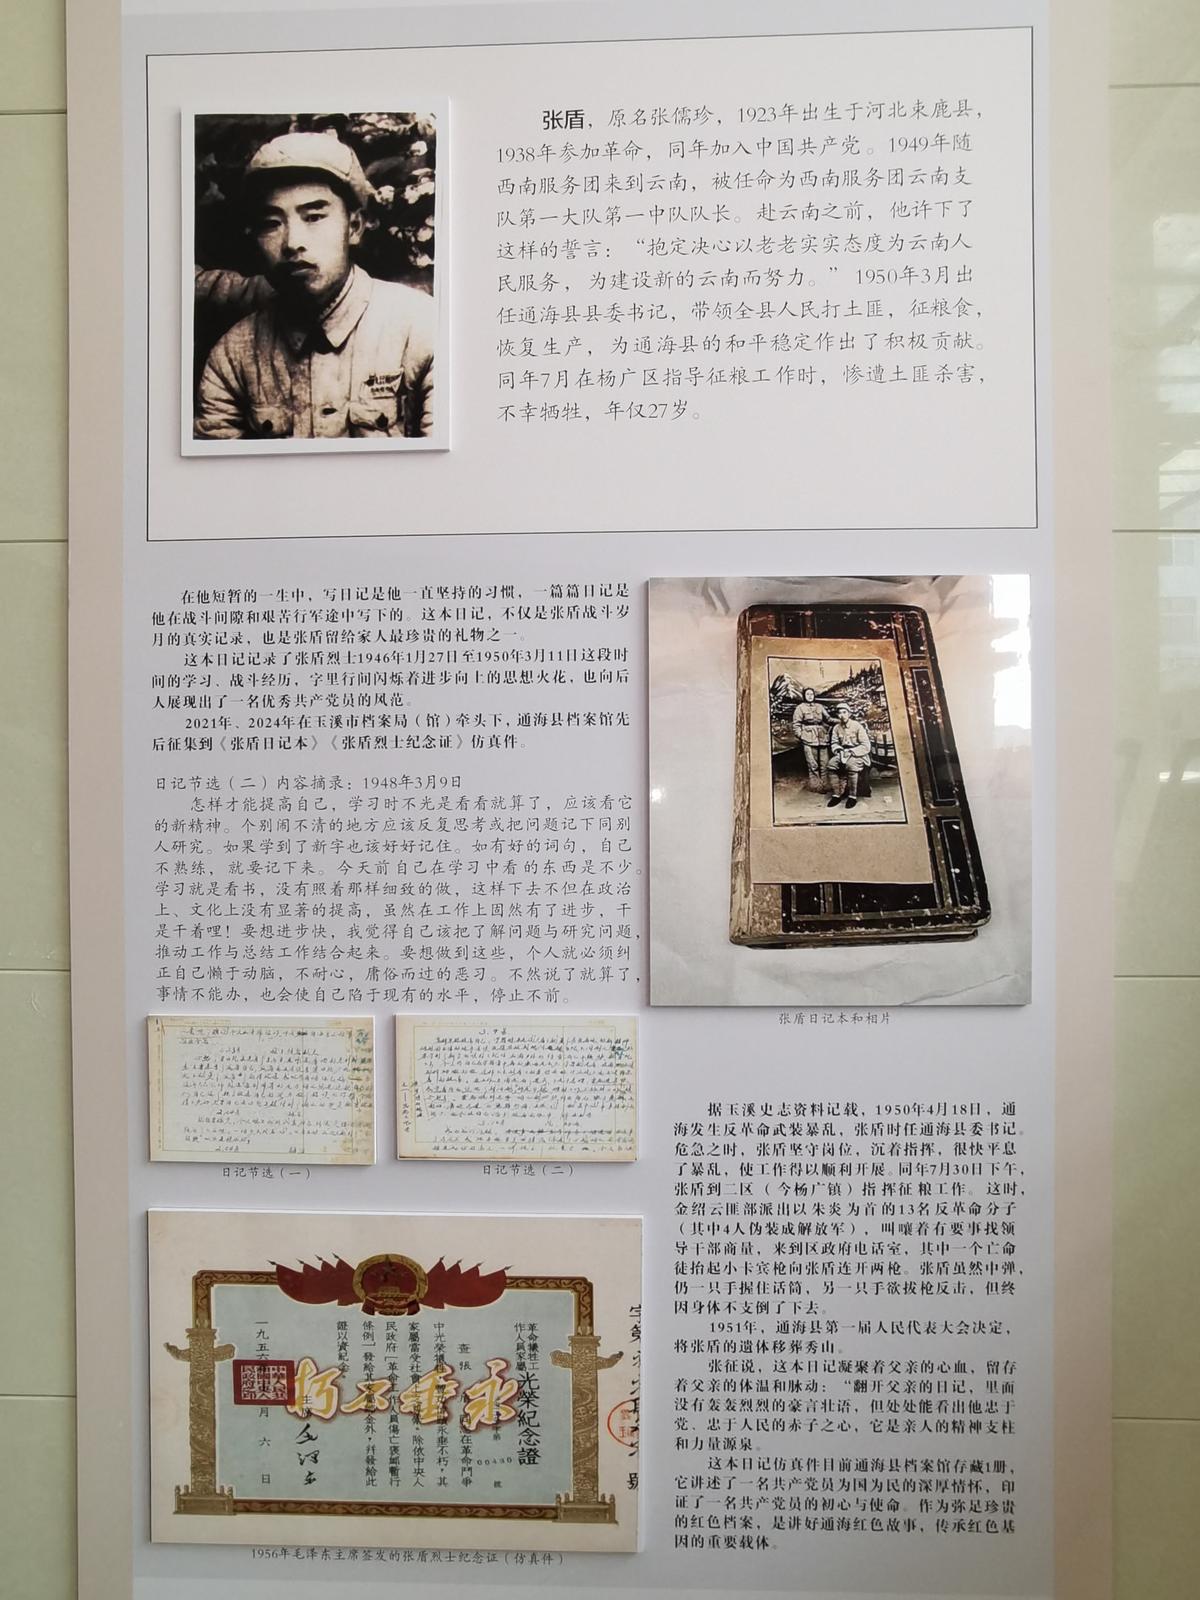 张盾，原名张儒珍，1923年出生于河北束鹿县，
1938年参加革命，同年加入中国共产党。1949年随
西南服务团来到云南，被任命为西南服务团云南支
队第一大队第一中队队长。赴云南之前，他许下了
这样的誓言：“抱定决心以老老实实态度为云南人
民服务，为建设新的云南而努力。”1950年3月出
任通海县县委书记，带领全县人民打土匪，征粮食，
恢复生产，为通海县的和平稳定作出了积极贡献。
同年7月在杨广区指导征粮工作时，惨遭土匪杀害，
不幸牺牲，年仅27岁。
在他短暂的一生中，写日记是他一直坚持的习惯，一篇篇日记是
他在战斗间隙和艰苦行军途中写下的。这本日记，不仅是张盾战斗岁
月的真实记录，也是张盾留给家人最珍贵的礼物之一。
这本日记记录了张盾烈士1946年1月27日至1950年3月11日这段时
间的学习、战斗经历，字里行间闪烁着进步向上的思想火花，也向后
人展现出了一名优秀共产党员的风范。
2021年、2024年在玉溪市档案局（馆）牵头下，通海县档案馆先
后征集到《张盾日记本》《张盾烈士纪念证》仿真件。
日记节选（二）内容摘录：1948年3月9日
怎样才能提高自己，学习时不光是看看就算了，应该看它
的新精神。个别闹不清的地方应该反复思考或把问题记下同别
人研究。如果学到了新字也该好好记住。如有好的词句，自己
不熟练，就要记下来。今天前自己在学习中看的东西是不少。
学习就是看书，没有照着那样细致的做，这样下去不但在政治
上、文化上没有显著的提高，虽然在工作上固然有了进步，干
是干着哩！要想进步快，我觉得自己该把了解问题与研究问题，
推动工作与总结工作结合起来。要想做到这些，个人就必须纠
正自己懒于动脑，不耐心，庸俗而过的恶习。不然说了就算了，
事情不能办，也会使自己陷于现有的水平，停止不前。
张盾日记本和相片
日记节选（一）
日记节选（二）
革命犧牲工
作人員家屬光榮紀念證
永垂不朽
00430
號
一九五六年
月六日
1956年毛泽东主席签发的张盾烈士纪念证（仿真件）
据玉溪史志资料记载，1950年4月18日，通
海发生反革命武装暴乱，张盾时任通海县委书记。
危急之时，张盾坚守岗位，沉着指挥，很快平息
了暴乱，使工作得以顺利开展。同年7月30日下午，
张盾到二区（今杨广镇）指挥征粮工作。这时，
金绍云匪部派出以朱炎为首的13名反革命分子
（其中4人伪装成解放军），叫嚷着有要事找领
导干部商量，来到区政府电话室，其中一个亡命
徒抬起小卡宾枪向张盾连开两枪。张盾虽然中弹，
仍一只手握住话筒，另一只手欲拔枪反击，但终
因身体不支倒了下去。
1951年，通海县第一届人民代表大会决定，
将张盾的遗体移葬秀山。
张征说，这本日记凝聚着父亲的心血，留存
着父亲的体温和脉动：“翻开父亲的日记，里面
没有轰轰烈烈的豪言壮语，但处处能看出他忠于
党、忠于人民的赤子之心，它是亲人的精神支柱
和力量源泉。
这本日记仿真件目前通海县档案馆存藏1册，
它讲述了一名共产党员为国为民的深厚情怀，印
证了一名共产党员的初心与使命。作为弥足珍贵
的红色档案，是讲好通海红色故事，传承红色基
因的重要载体。